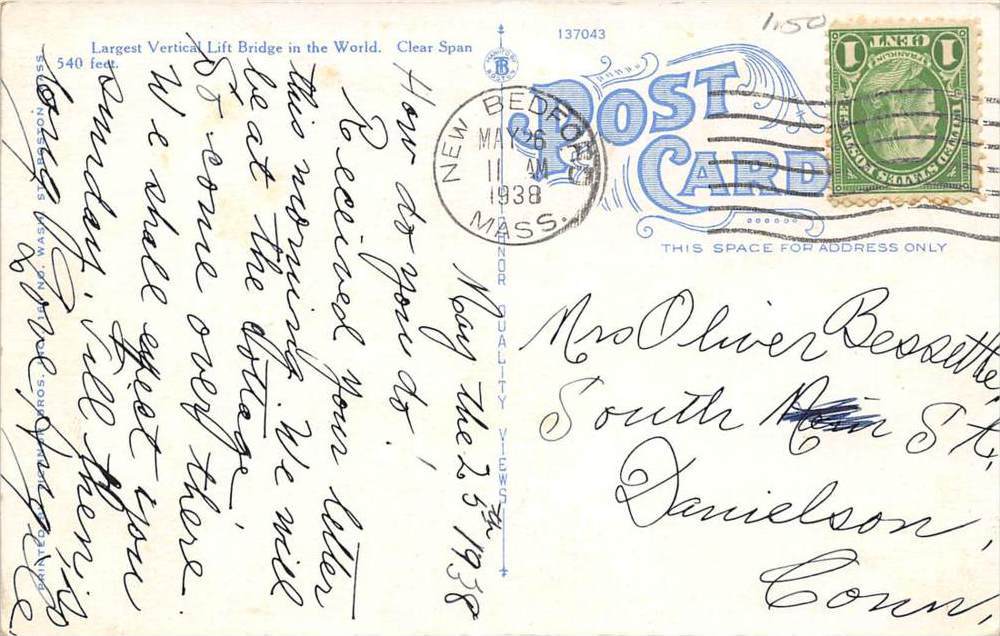 Largest Vertical Lift Bridge in the World. Clear Span
540 feet.
137043
1.50
POST
CARD
THIS SPACE FOR ADDRESS ONLY
1 CENT 1
FRANKLIN
UNITED STATES POSTAGE
NEW BEDFORD
MAY 26
11 AM
1938
MASS.
May the 25th 1938
How do you do!
Received your letter
this morning. We will
be at the cottage
to come over there.
We shall expect you
sunday, till then is
Love
Mrs Oliver Bessette
South Main St,
Danielson,
Conn,
QUALITY VIEWS
BROS. NO. WASH. ST. BOSTON